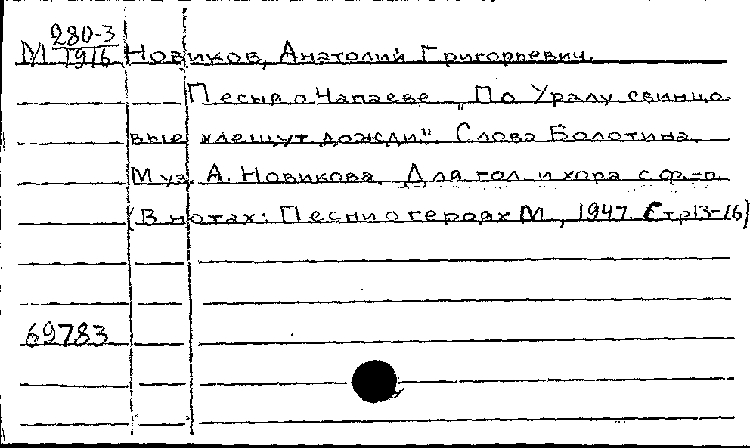 М 280-3/1916 Новиков, Анатолий Григорьевич.
Песня о Чапаеве „По Уралу свинцо
вые хлещут дожди". Слова Болотина.
Муз. А. Новикова. Для гол. и хора с ф.-п.
(В нотах: Песни о героях М., 1947. Стр 13-16)
69783